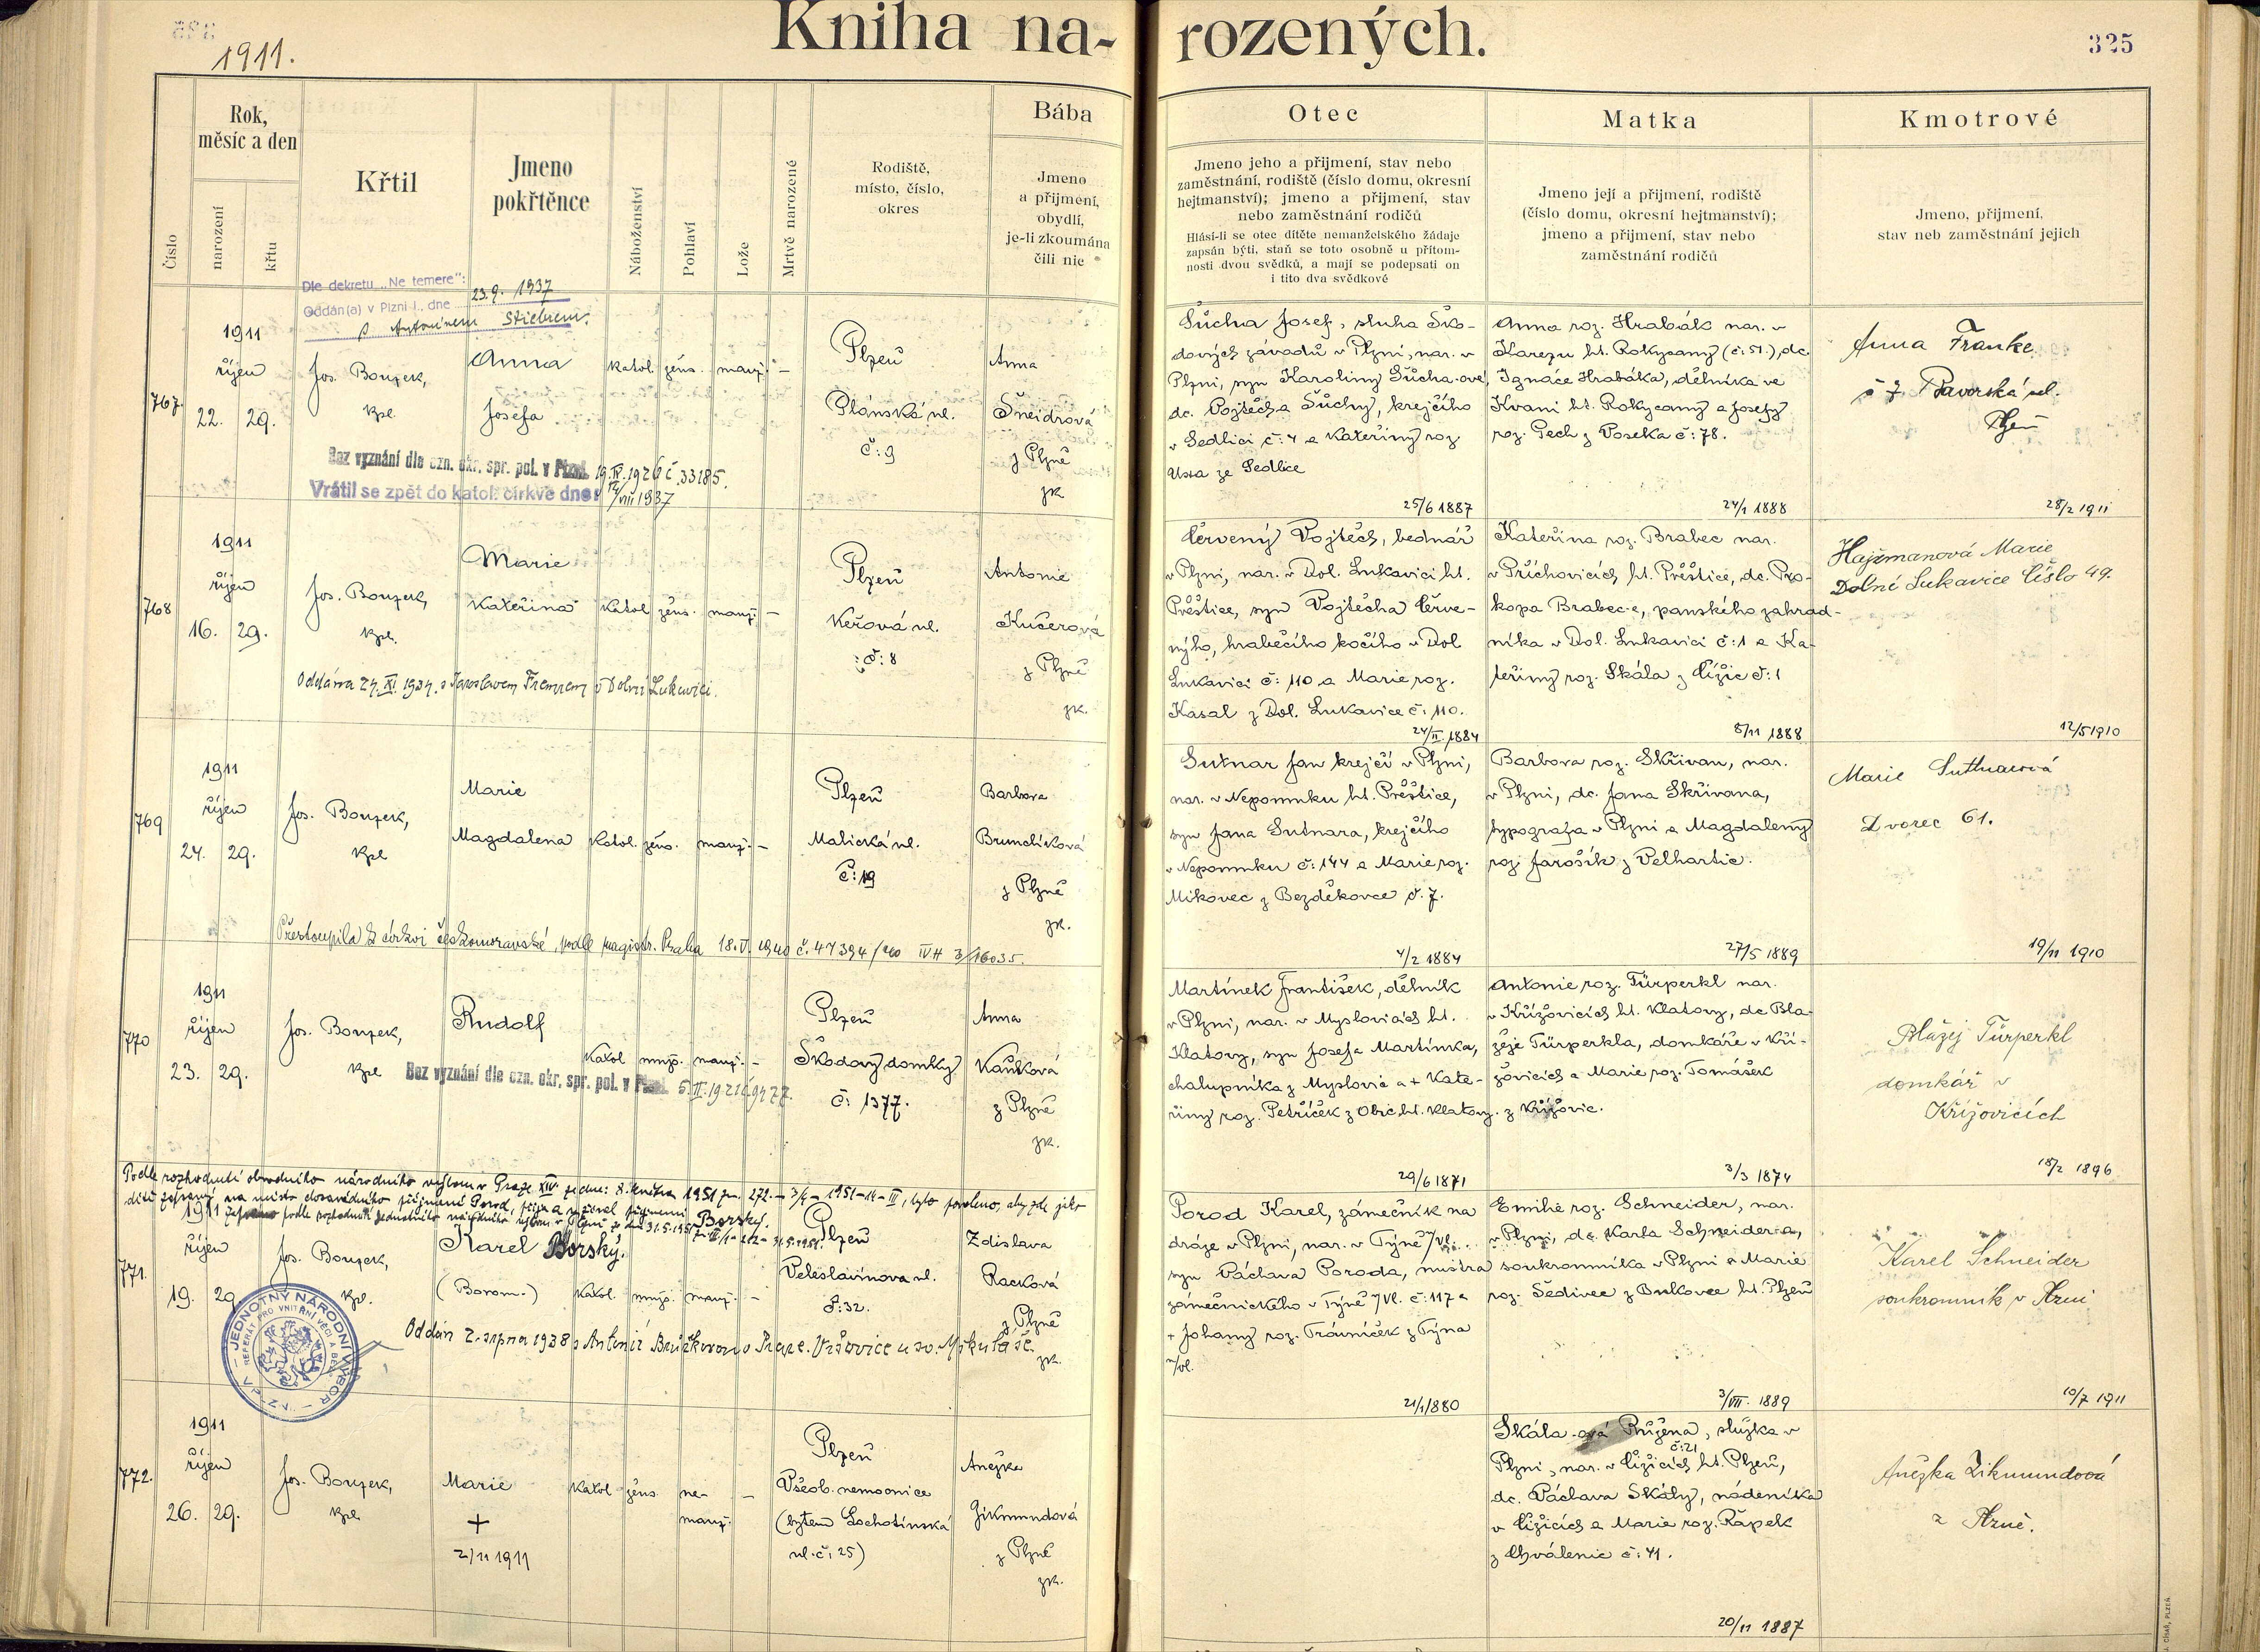 Kniha na-
rozených.
325
1911.
Číslo
Rok,
měsíc a den
narození
křtu
Křtil
Jmeno
pokřtěnce
Náboženství
Pohlaví
Lože
Mrtvě narozené
Rodiště,
místo, číslo,
okres
Bába
Jmeno
a přijmení,
obydlí,
je-li zkoumána
čili nic
Otec
Jmeno jeho a přijmení, stav nebo
zaměstnání, rodiště (číslo domu, okresní
hejtmanství); jmeno a přijmení, stav
nebo zaměstnání rodičů
Hlásí-li se otec dítěte nemanželského žádaje
zapsán býti, staň se toto osobně u přítom-
nosti dvou svědků, a mají se podepsati on
i tito dva svědkové
Matka
Jmeno její a přijmení, rodiště
(číslo domu, okresní hejtmanství);
jmeno a přijmení, stav nebo
zaměstnání rodičů
Kmotrové
Jmeno, přijmení,
stav neb zaměstnání jejich
Dle dekretu „Ne temere“:
Oddán(a) v Plzni I., dne 23.9. 1937
s Antonínem Stiebrem.
767.
1911
říjen
22. 29.
Jos. Bouzek,
kpl.
Anna
Josefa
katol. žens. manž. —
Plzeň
Plánská ul.
č: 9
Anna
Šneidrová
z Plzně
zk.
Bez vyznání dle ozn. okr. spr. pol. v Plzni. 19.IV.1926 č. 33185.
Vrátil se zpět do katol. církve dne: 12/VIII 1937
Šůcha Josef, sluha Ško-
dových závodů v Plzni, nar. v
Plzni, syn Karoliny Šůcha-ové,
dc. Vojtěcha Šůchy, krejčího
v Sedlici č: 4 a Kateřiny roz.
ze Sedlice
25/6 1887
Anna roz. Hrabák nar. v
Karezu ht. Rokycany (č: 51.), dc.
Ignáce Hrabáka, dělníka ve
Kvani ht. Rokycany a Josefy
roz. Pech z Voseka č: 78.
24/1 1888
Anna Franke
č 7 Tavorská ul.
Plzeň
28/2 1911
768
1911
říjen
16. 29.
Jos. Bouzek,
kpl.
Marie
Kateřina
katol. žens. manž. —
Plzeň
Keřová ul.
č: 8
Antonie
Kučerová
z Plzně
zk.
Oddána 24. XI. 1934. s Jaroslavem v Dolní Lukavici.
Červený Vojtěch, bednář
v Plzni, nar. v Dol. Lukavici ht.
Přeštice, syn Vojtěcha Červe-
nýho, hraběcího kočího v Dol
Lukavici č: 110 a Marie roz.
Kasal z Dol. Lukavice č: 110.
24/II. 1884
Kateřina roz. Brabec nar.
v Příchovicích ht. Přeštice, dc. Pro-
kopa Brabec-e, panského zahrad-
níka v Dol. Lukavici č: 1 a Ka-
teřiny roz. Skála z Čížic č: 1
8/11 1888
Hajžmanová Marie
Dolné Lukavice Číslo 49.
12/5 1910
769
1911
říjen
24. 29.
Jos. Bouzek,
kpl
Marie
Magdalena
katol. žens. manž. —
Plzeň
Malická ul.
č: 19
Barbora
Brunclíková
z Plzně
zk.
Přestoupila k církvi českomoravské, podle magistr. Praha 18.V. 1940 č. 47394/40 IVH 3/16035.
Sutnar Jan krejčí v Plzni,
nar. v Nepomuku ht. Přeštice,
syn Jana Sutnara, krejčího
v Nepomuku č: 144 a Marie roz.
Mikovec z Bezděkovce č. 7.
4/2 1884
Barbora roz. Skřivan, nar.
v Plzni, dc. Jana Skřivana,
typografa v Plzni a Magdaleny
roz. Jarošík z Velhartic.
27/5 1889
Marie Suttnarová
Dvorec 61.
19/11 1910
770
1911
říjen
23. 29.
Jos. Bouzek,
kpl
Rudolf
katol. mužs. manž. —
Plzeň
Škodovy domky
č: 1377.
Anna
Kaňková
z Plzně
zk.
Bez vyznání dle ozn. okr. spr. pol. v Plzni. 5.II.1921 č. 9477.
Martínek František, dělník
v Plzni, nar. v Myslovicích ht.
Klatovy, syn Josefa Martínka,
chalupníka z Myslovic a + Kate-
řiny roz. Petříček z Obic ht. Klatovy.
29/6 1871
Antonie roz. Türperkl nar.
v Křížovicích ht. Klatovy, dc. Bla-
žeje Türperkla, domkáře v Kří-
žovicích a Marie roz. Tomášek
z Křížovic.
3/3 1874
Blažej Türperkl
domkář v
Křížovicích
18/2 1896
Podle rozhodnutí obvodního národního výboru v Praze XIV. ze dne: 8. května 1951 zn. 272.-3/4-1951-14-III, bylo povoleno, aby zde jako
dítě zapsaný na místo dosavadního příjmení Porod, přijal a užíval příjmení Borský.
Zapsáno podle rozhodnutí Jednotného národního výboru v Plzni ze dne 31.5.1951
771.
1911
říjen
19. 29.
Jos. Bouzek,
kpl.
Karel Borský.
(Borom.)
katol. mužs. manž. —
Plzeň
Veleslavínova ul.
č: 32.
Zdislava
Racková
z Plzně
zk.
Oddán 2. srpna 1938 s Antonií v Praze-Vršovice u sv. Mikuláše.
JEDNOTNÝ NÁRODNÍ VÝBOR
REFERÁT PRO VNITŘNÍ VĚCI A BEZP.
Porod Karel, zámečník na
dráze v Plzni, nar. v Týně n/Vl.
syn Václava Poroda, mistra
zámečnického v Týně n/Vl. č: 117 a
+ Johany roz. Trávníček z Týna
n/Vl.
21/1 1880
Emilie roz. Schneider, nar.
v Plzni, dc. Karla Schneider-a,
soukromníka v Plzni a Marie
roz. Šedivec z Bukovce ht. Plzeň
3/VII. 1889
Karel Schneider
soukromník v Plzni
10/7 1911
772.
1911
říjen
26. 29.
Jos. Bouzek,
kpl.
Marie
+
2/11 1911
katol. žens. ne-
manž. —
Plzeň
Všeob. nemocnice
(bytem Lochotínská
ul. č: 25)
Anežka
Zikmundová
z Plzně
zk.
Skála-ová Růžena, služka v
Plzni, nar. v Čížicích č: 21 ht. Plzeň,
dc. Václava Skály, nádeníka
v Čížicích a Marie roz. Rápek
z Chválenic č: 41.
20/11 1887
Anežka Zikmundová
z Plzně.